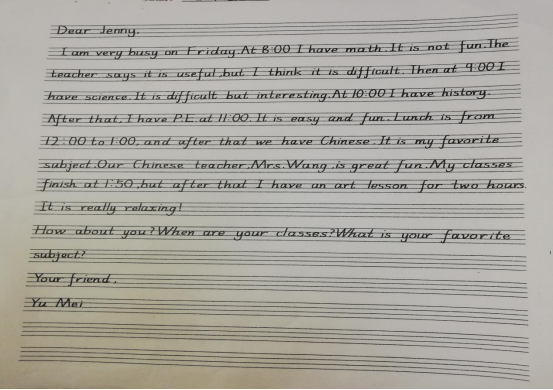 Dear Jenny,
I am very busy on Friday.At 8:00 I have math.It is not fun.The
teacher says it is useful,but I think it is difficult.Then at 9:00 I
have science.It is difficult but interesting.At 10:00 I have history.
After that,I have P.E.at 11:00.It is easy and fun.Lunch is from
12:00 to 1:00,and after that we have Chinese.It is my favorite
subject.Our Chinese teacher,Mrs.Wang,is great fun.My classes
finish at 1:50,but after that I have an art lesson for two hours.
It is really relaxing!
How about you?When are your classes?What is your favorite
subject?
Your friend,
Yu Mei